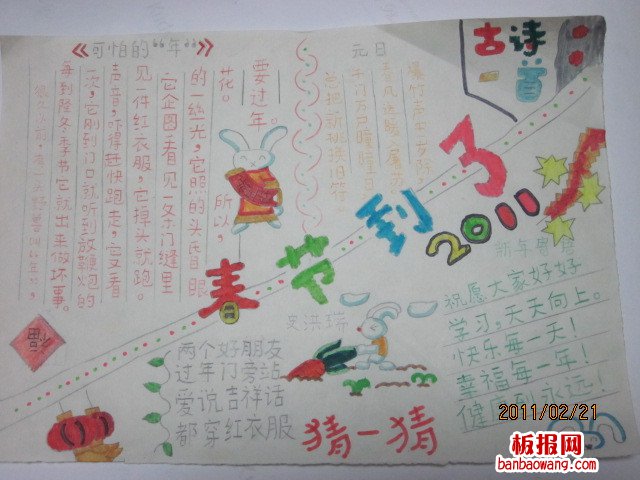 《可怕的“年”》
很久以前,有一头野兽叫
每到隆冬季节它就出来做坏事。
一次,它刚到门口就听到放鞭炮的
声音,吓得赶快跑走,它又看
见一件红衣服,它掉头就跑。
它企图看见一条门缝里
的一丝光,它照的头晕眼
花。所以,
要过年。
元日
爆竹声中
千门万户曈曈日
总把新桃换旧符。
古诗
一首
春节到了
2011
福
祝愿大家好好
学习,天天向上。
快乐每一天!
幸福每一年!
健康 永远!
两个好朋友
过年门旁站
爱说吉祥话
都穿红衣服
猜一猜
2011/02/21
板报网
banbaowang.com